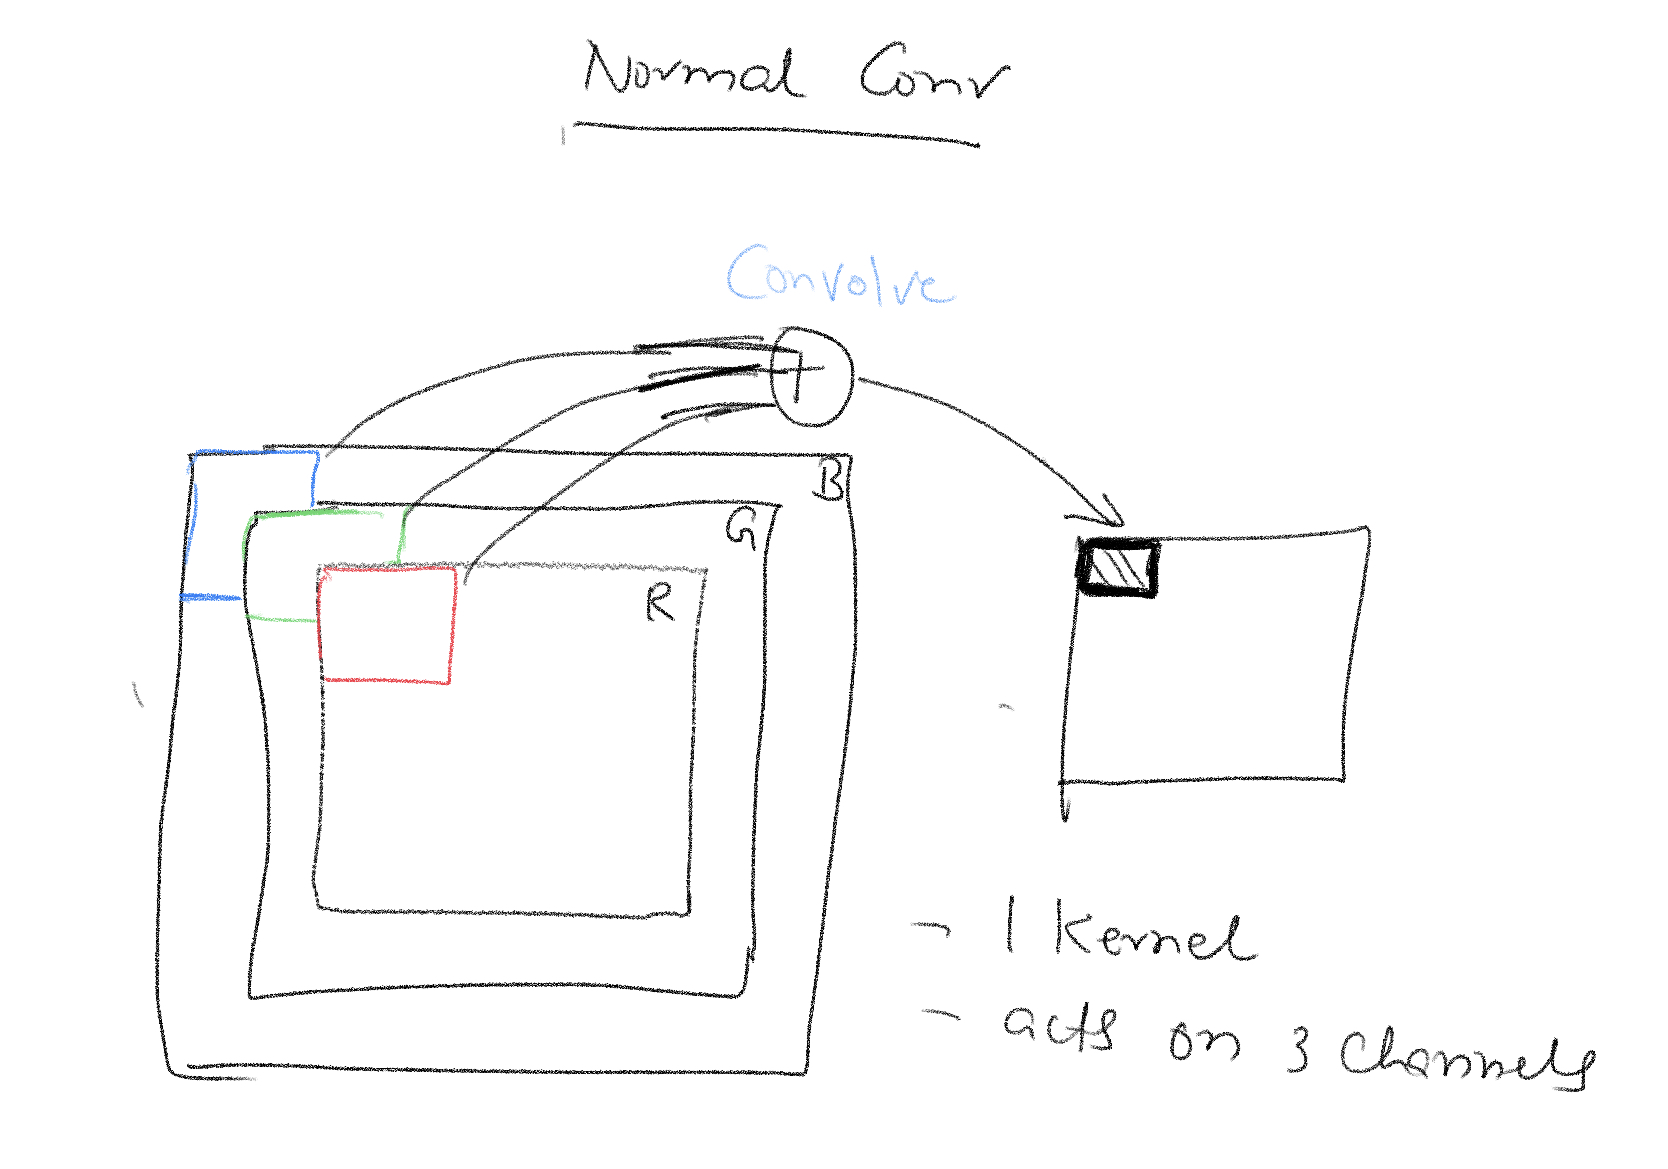 Normal Conv
Convolve
+
B
G
R
- 1 Kernel
- acts on 3 Channels